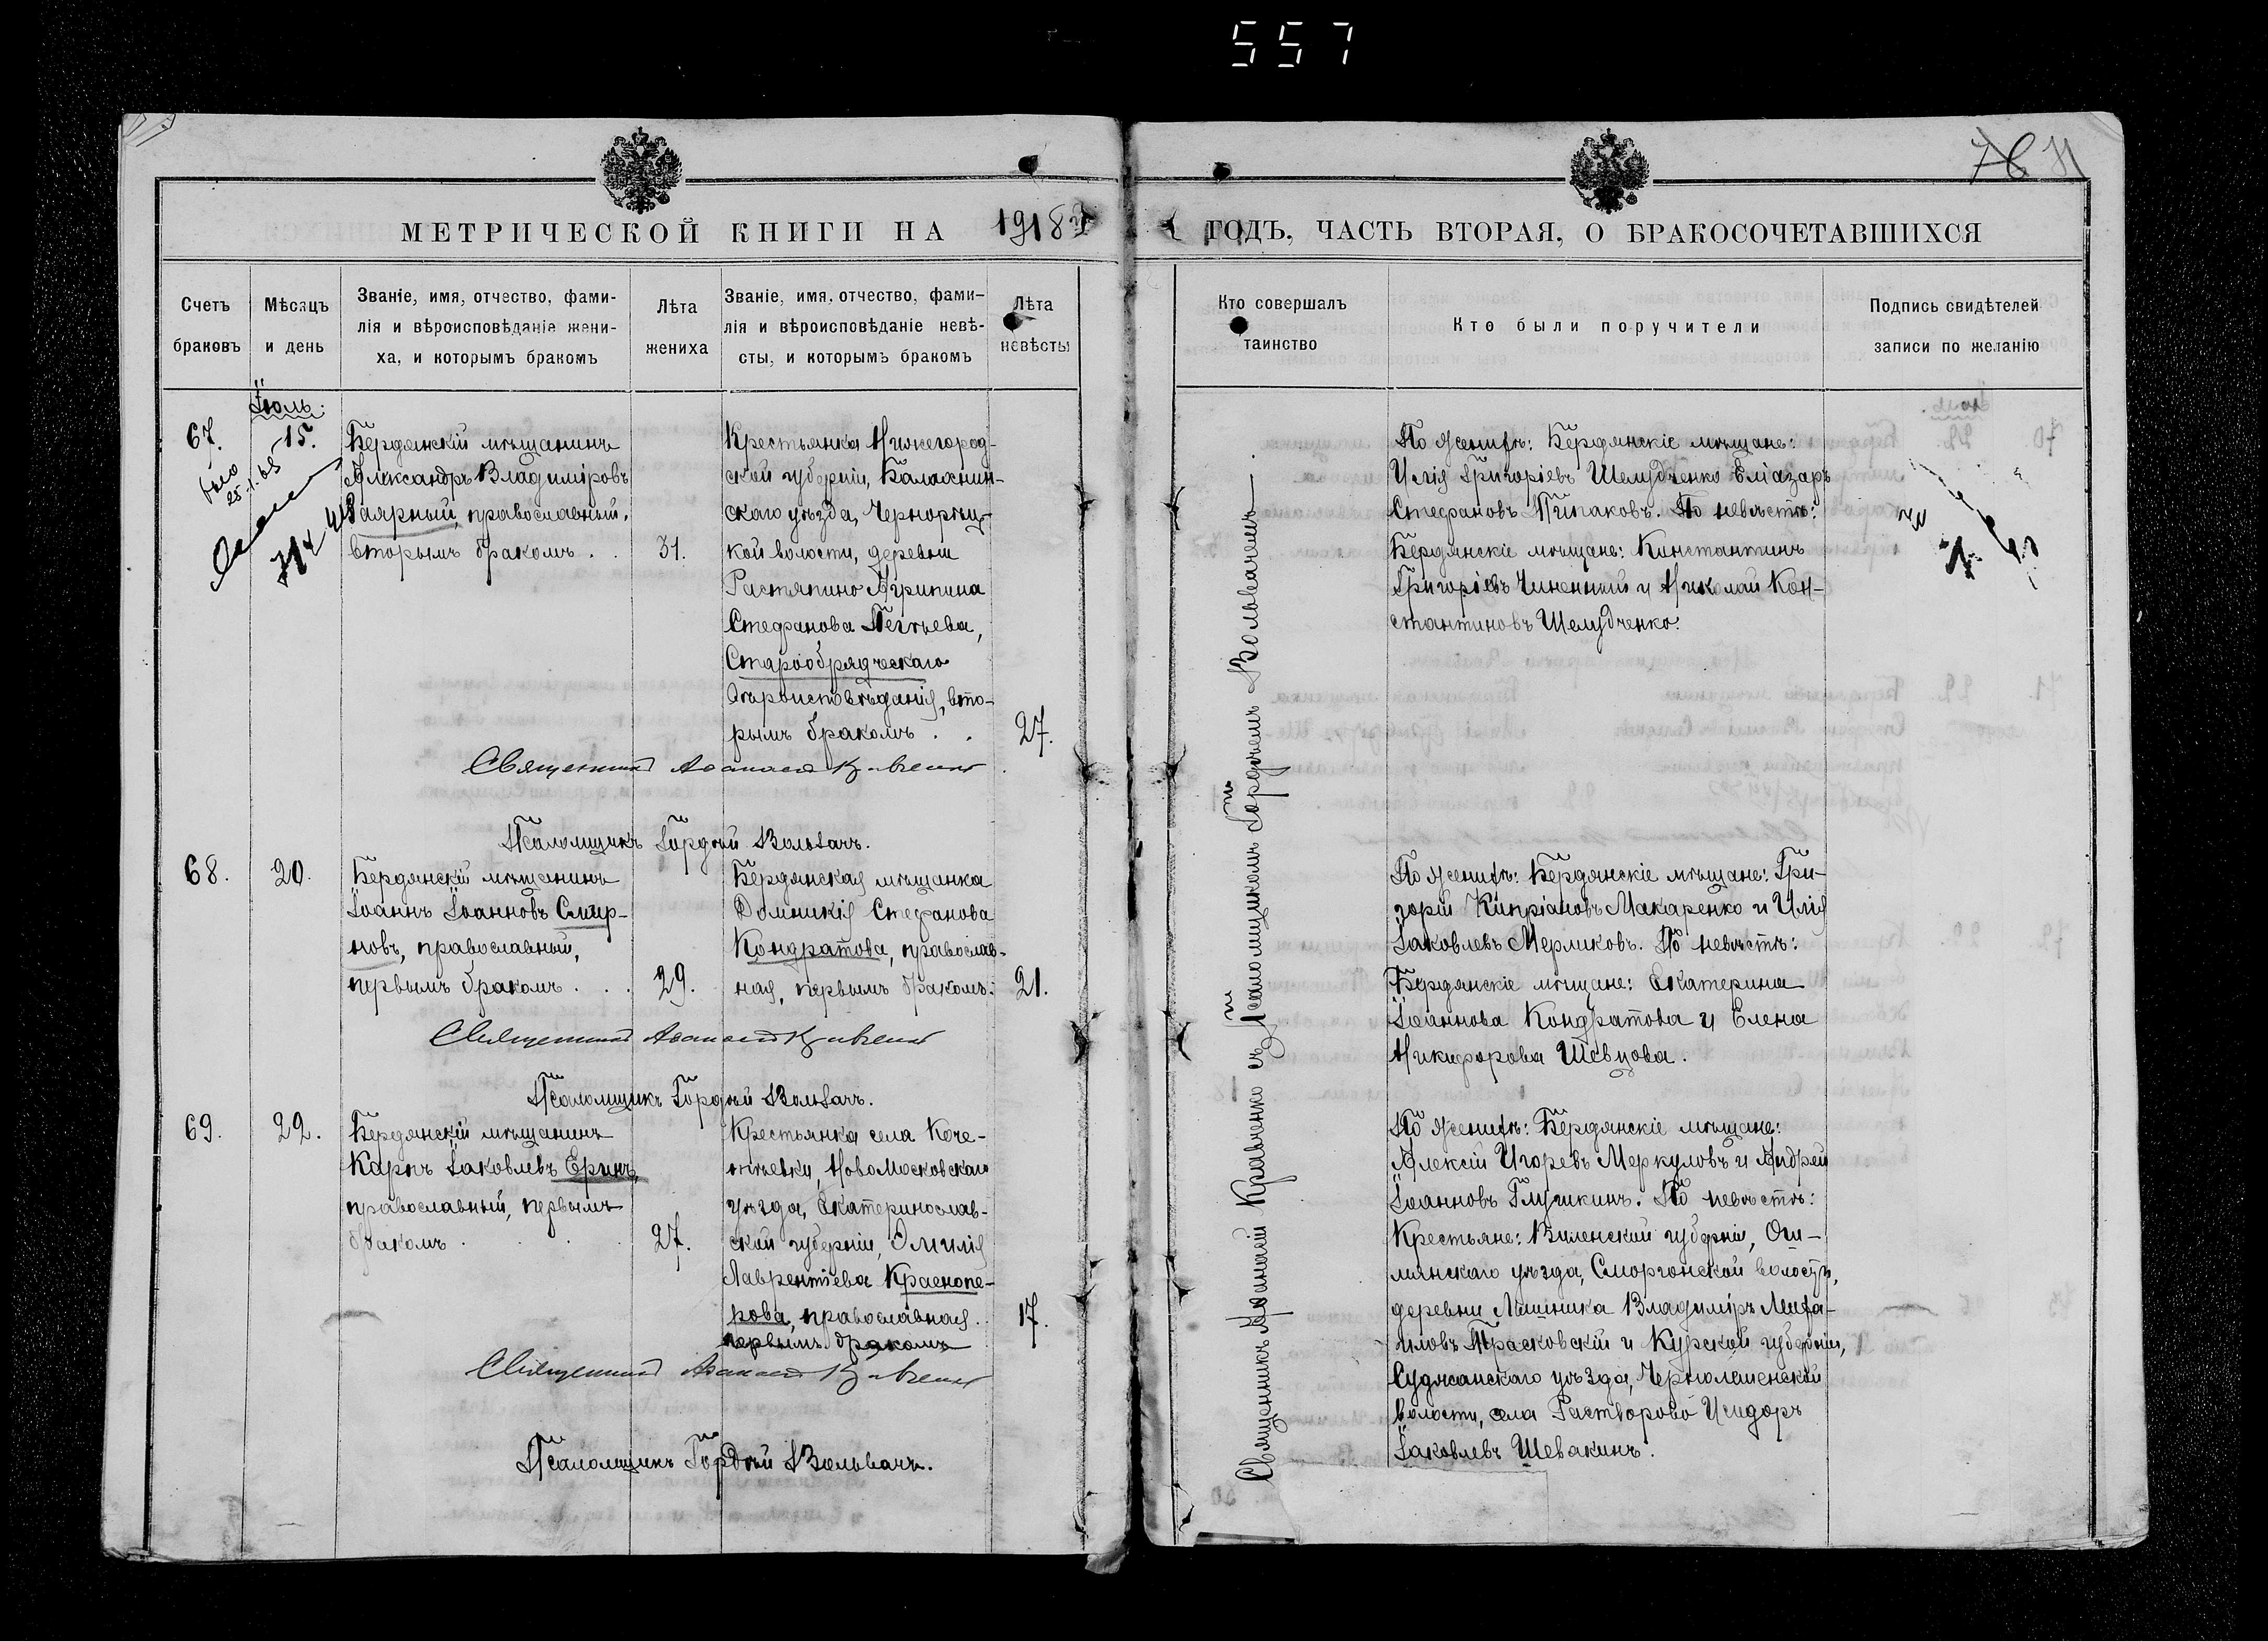 557
76 71
МЕТРИЧЕСКОЙ КНИГИ НА 1918 й
ГОДЪ, ЧАСТЬ ВТОРАЯ, О БРАКОСОЧЕТАВШИХСЯ
Счетъ
браковъ
Мѣсяцъ
и день
Званіе, имя, отчество, фами-
лія и вѣроисповѣданіе жени-
ха, и которымъ бракомъ
Лѣта
жениха
Званіе, имя, отчество, фами-
лія и вѣроисповѣданіе невѣ-
сты, и которымъ бракомъ
Лѣта
невѣсты
Кто совершалъ
таинство
Кто были поручители
Подпись свидѣтелей
записи по желанію
Іюль.
67.
15.
Бердянскій мѣщанинъ
Александръ Владиміровъ
Заярный, православный,
вторымъ бракомъ . .
31.
Крестьянка Нижегород-
ской губерніи, Балахнин-
скаго уѣзда, Чернорѣц-
кой волости, деревни
Растяпино Агрипина
Стефанова
Старообрядческаго
вѣроисповѣданія, вто-
рымъ бракомъ . .
27.
Священникъ Аѳанасій Кравченко
Псаломщикъ Гордѣй Вольвачъ.
По женихѣ: Бердянскіе мѣщане:
Илія Григоріевъ Шелудченко Еліазаръ
Стефановъ Типаковъ. По невѣстѣ:
Бердянскіе мѣщане: Константинъ
Григоріевъ Чиненный и Николай Кон-
стантиновъ Шелудченко.
68.
20.
Бердянскій мѣщанинъ
Іоаннъ Іоанновъ Смир-
новъ, православный,
первымъ бракомъ . . .
29.
Бердянская мѣщанка
Домникія Стефанова
Кондратова, православ-
ная, первымъ бракомъ.
21.
Священникъ Аѳанасій Кравченко
Псаломщикъ Гордѣй Вольвачъ.
По женихѣ: Бердянскіе мѣщане: Гри-
горій Кипріановъ Макаренко и Илія
Іаковлевъ Мерликовъ. По невѣстѣ:
Бердянскіе мѣщане: Екатерина
Іоаннова Кондратова и Елена
Никифорова Шевцова.
69.
22.
Бердянскій мѣщанинъ
Карпъ Іаковлевъ Еринъ,
православный, первымъ
бракомъ . . . .
27.
Крестьянка села Коче-
Новомосковскаго
уѣзда, Екатеринослав-
ской губерніи, Эмилія
Лаврентіева Краснопе-
рова, православная.
первымъ бракомъ
17.
Священникъ Аѳанасій Кравченко
Псаломщикъ Гордѣй Вольвачъ.
По женихѣ: Бердянскіе мѣщане:
Алексій Игоревъ Меркуловъ и Андрей
Іоанновъ Глушкинъ. По невѣстѣ:
Крестьяне: Виленской губерніи, Ош-
мянскаго уѣзда, Сморгонской волости,
деревни Владиміръ Миха-
иловъ Трасковскій и Курской губерніи,
Суджанскаго уѣзда,
волости, села Растворово Исидоръ
Іаковлевъ Шевакинъ.
Священникъ Аѳанасій Кравченко съ Псаломщикомъ Гордѣемъ Вольвачемъ